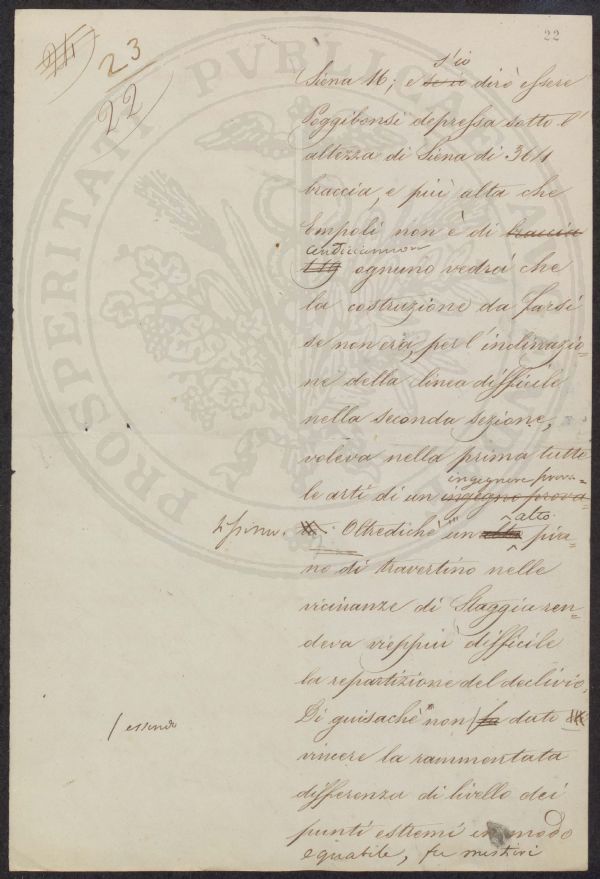 22
23
22
s'io
Siena 16; e se io dirò essere
Poggibonsi depressa sotto l'
altezza di Siena di 361
braccia, e più alta che
Empoli non è di braccia
119 ognuno vedrà che
la costruzione da farsi
se non era, per l'inclinazio=
ne della linea difficile
nella seconda sezione,
voleva nella prima tutte
ingegnere prova=
le arti di un ingegno prova
alto
Oltrediché un pia=
no di travertino nelle
vicinanze di Staggia ren=
deva vieppiù difficile
la repartizione del declivio.
/ essendo
Di guisaché non / fu dato
vincere la rammentata
differenza di livello dei
punti estremi in modo
equabile, fu mestieri
PROSPERITATI PVBLICAE